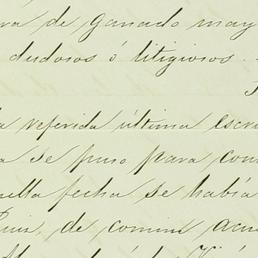 ra de ganado may
dudosos ó litigiosos.
a referida última escri
a se puso para con
ella fecha se había
Luis, de comun acu